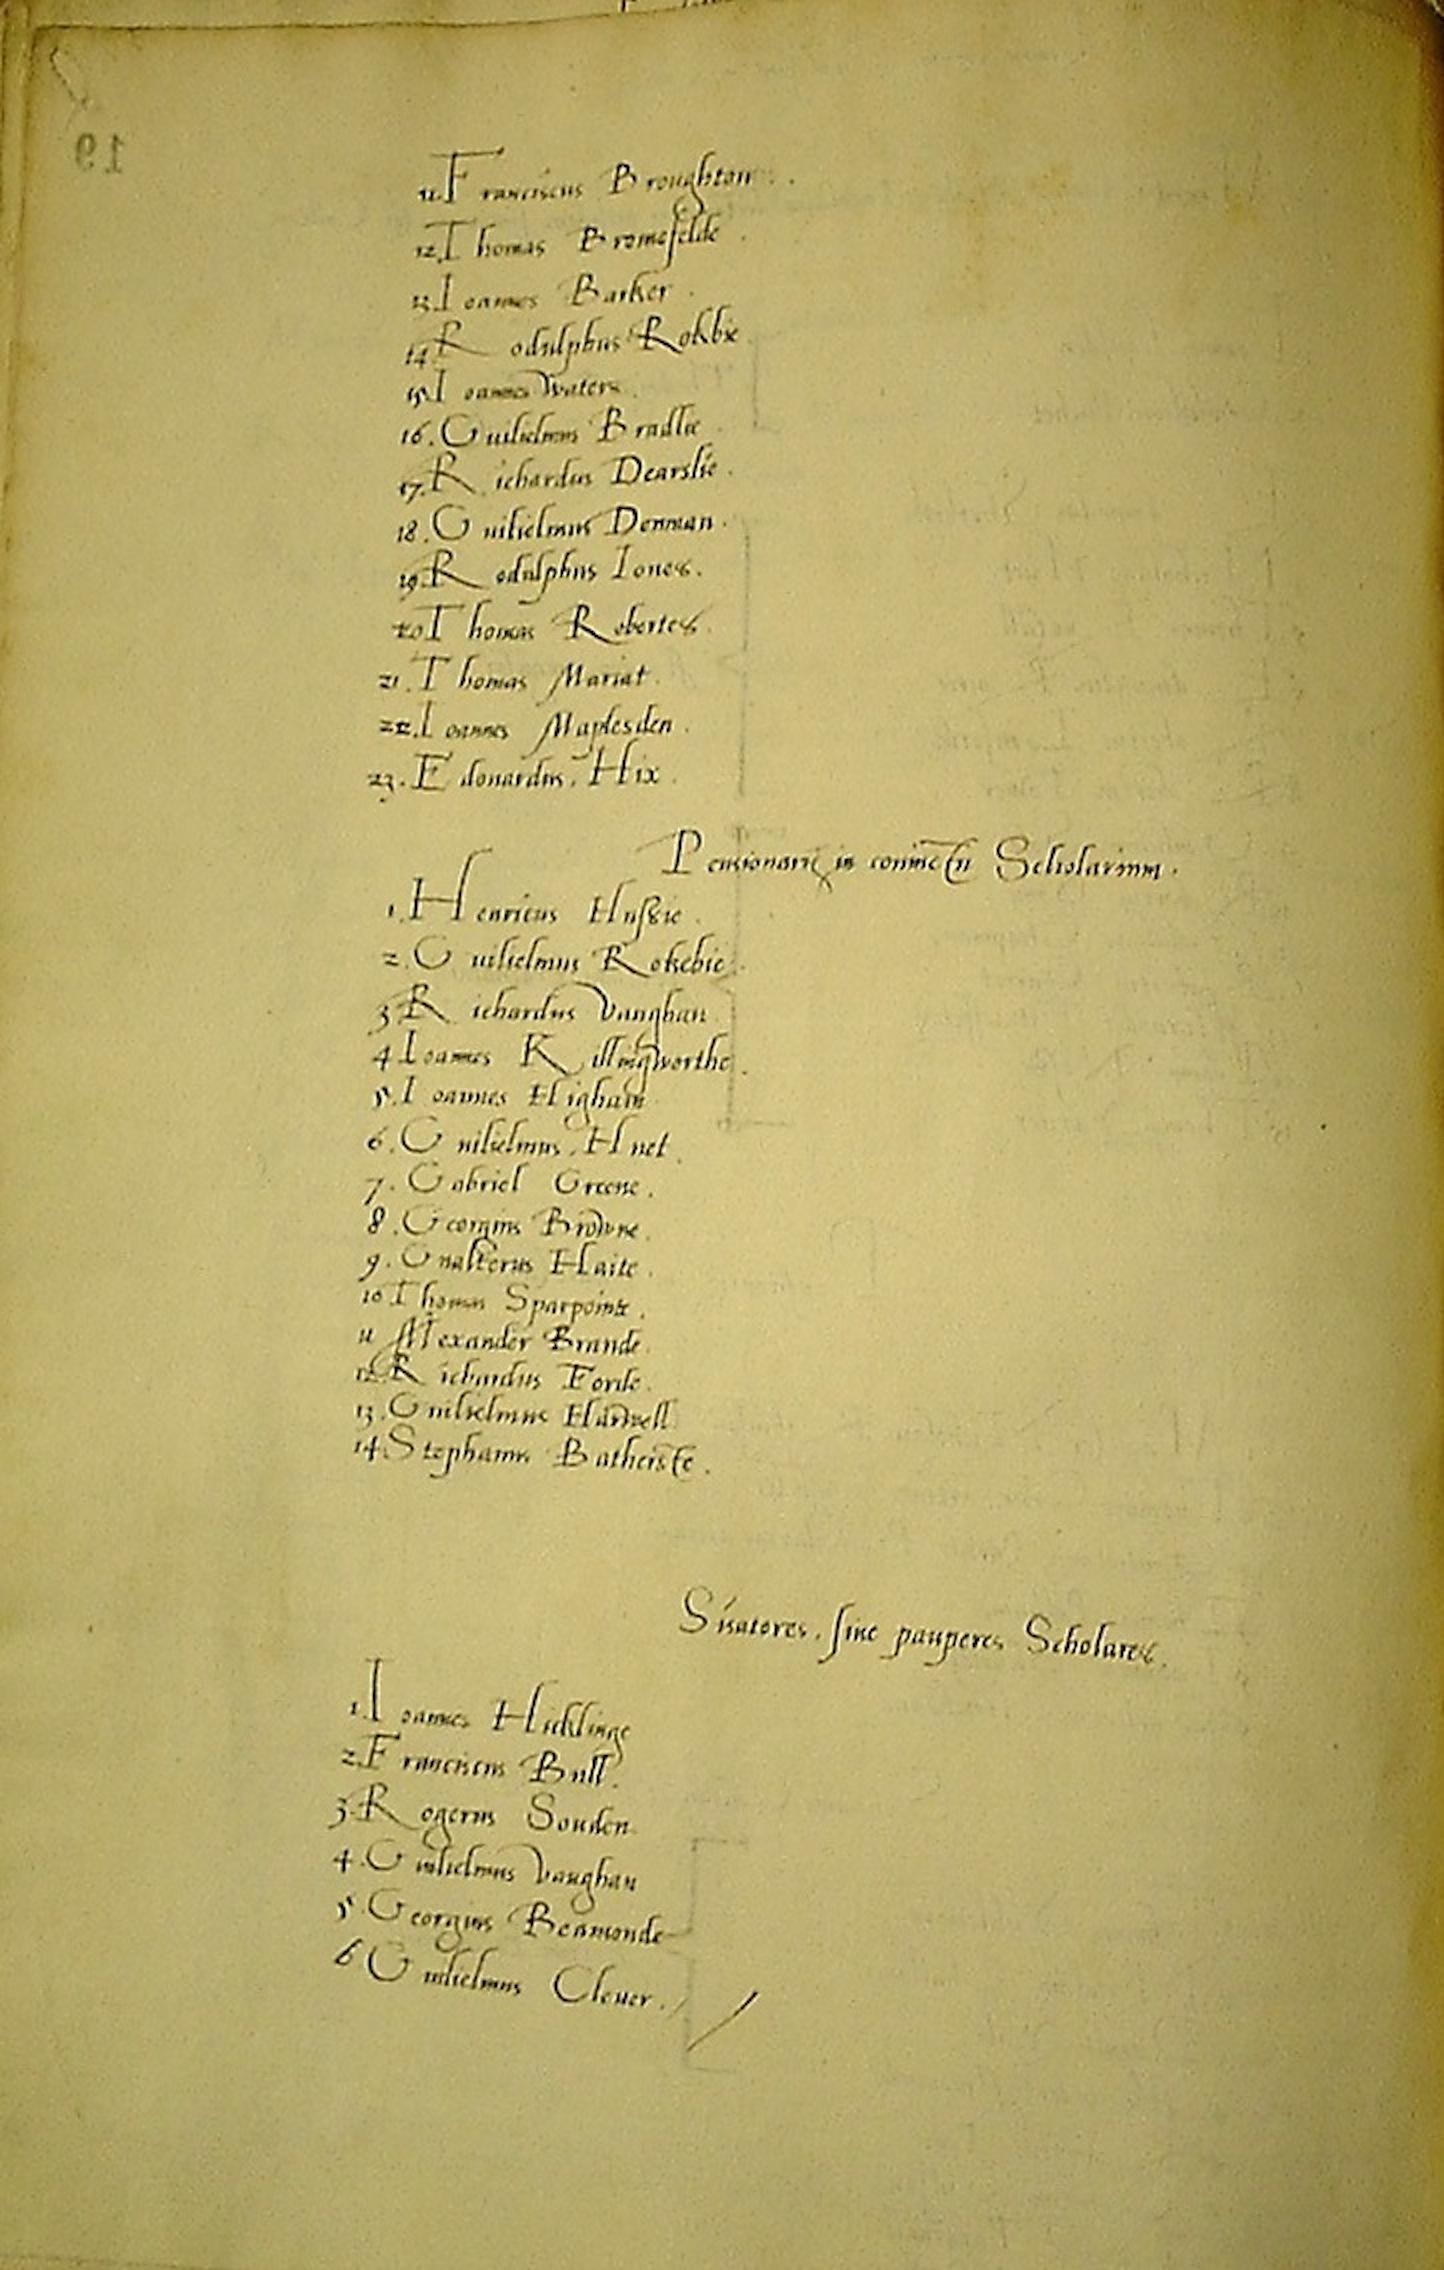 11. Franciscus Broughton.
12. Thomas Bromefelde.
13. Ioannes Barker.
14. Rodulphus Rokbie
15. Ioannes Waters.
16. Guilielmus Bradlie.
17. Richardus Dearslie.
18. Guilielmus Denman.
19. Rodulphus Iones.
20 Thomas Robertes.
21. Thomas Mariat.
22. Ioannes Maplesden.
23. Edouardus. Hix.
Pensionarii in Scholarium.
1. Henricus Hussie.
2. Guilielmus Rokebie.
3 Richardus Vaughan
4 Ioannes Killingworthe.
5. Ioannes Higham
6. Guilielmus. Huet.
7. Gabriel Greene.
8. Georgius Browne.
9. Gualterus Haite.
10 Thomas Sparpointe.
11 Alexander Brande.
12 Richardus Forde.
13. Guilielmus Harwell
14. Stephanus Batherste.
Sisatores. siue pauperes Scholares.
1. Ioannes Hicklinge
2. Franciscus Bull.
3. Rogerus Souden
4. Guilielmus Vaughan
5 Georgius Beamonde
6 Guilielmus Cleuer.
19